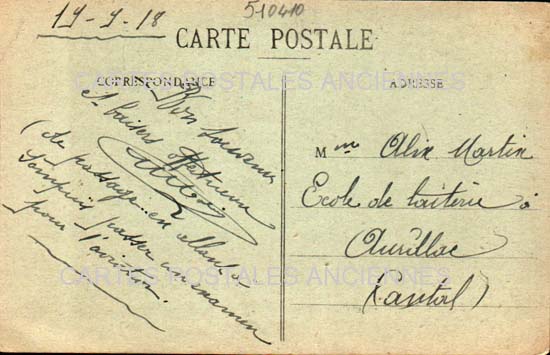 19-9-18
510410
CARTE POSTALE
CORRESPONDANCE
ADRESSE
CARTES POSTALES ANCIENNES
Bon Souvenir
et baisers
(de passage en allant à
passer un examen
pour l'aviation.
Mme Alix Martin
Ecole de laiterie à
Aurillac
(Cantal)
CARTES POSTALES ANCIENNES